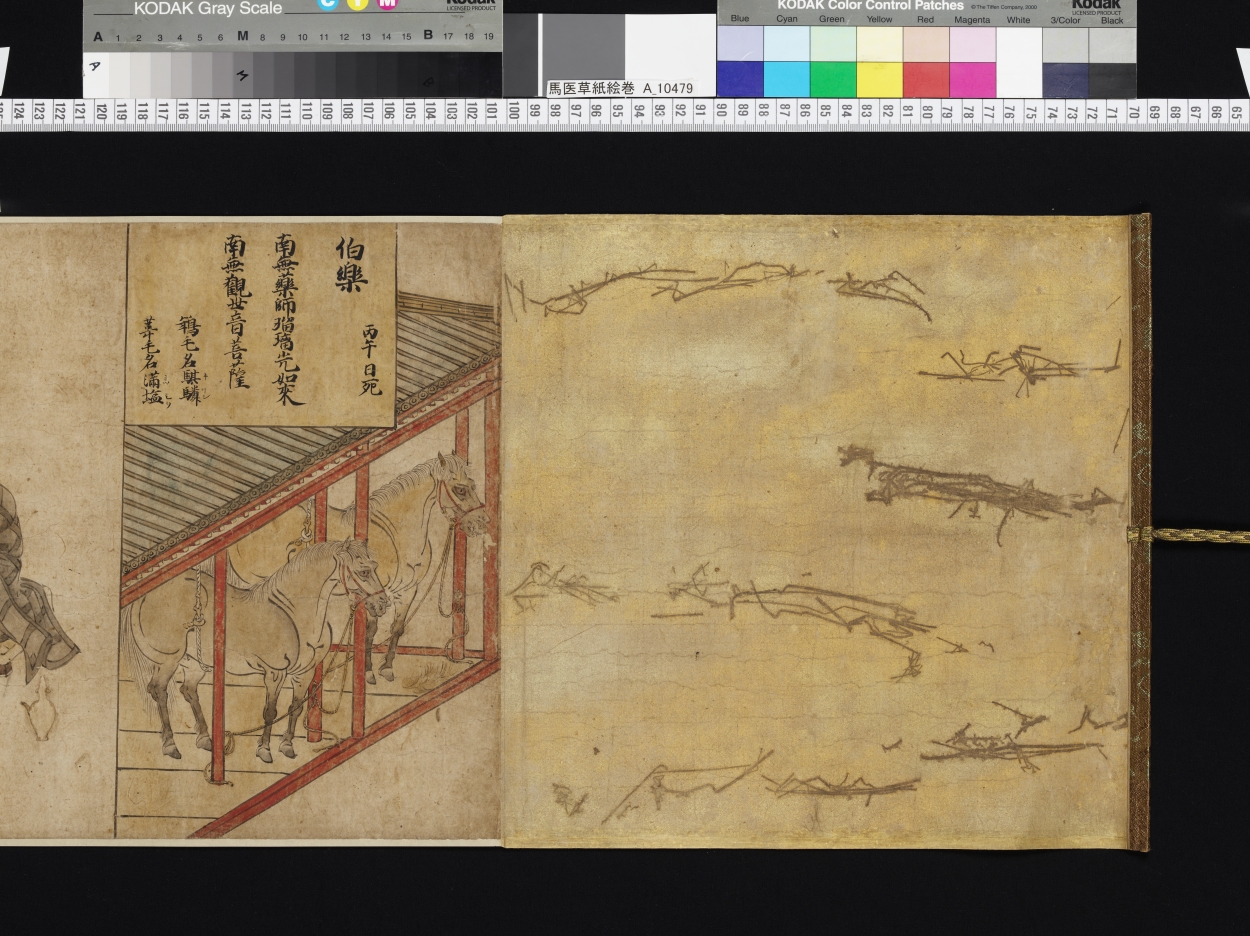 KODAK Gray Scale
C Y M
Kodak
LICENSED PRODUCT
A 1 2 3 4 5 6 M 8 9 10 11 12 13 14 15 B 17 18 19
A M B
馬医草紙絵巻 A_10479
KODAK Color Control Patches
© The Tiffen Company, 2000
Kodak
LICENSED PRODUCT
Blue Cyan Green Yellow Red Magenta White 3/Color Black
124 123 122 121 120 119 118 117 116 115 114 113 112 111 110 109 108 107 106 105 104 103 102 101 100 99 98 97 96 95 94 93 92 91 90 89 88 87 86 85 84 83 82 81 80 79 78 77 76 75 74 73 72 71 70 69 68 67 66 65
伯樂
丙午日死
南無藥師瑠璃光如來
南無觀世音菩薩
鵇毛名騏驎
葦毛名滿塩